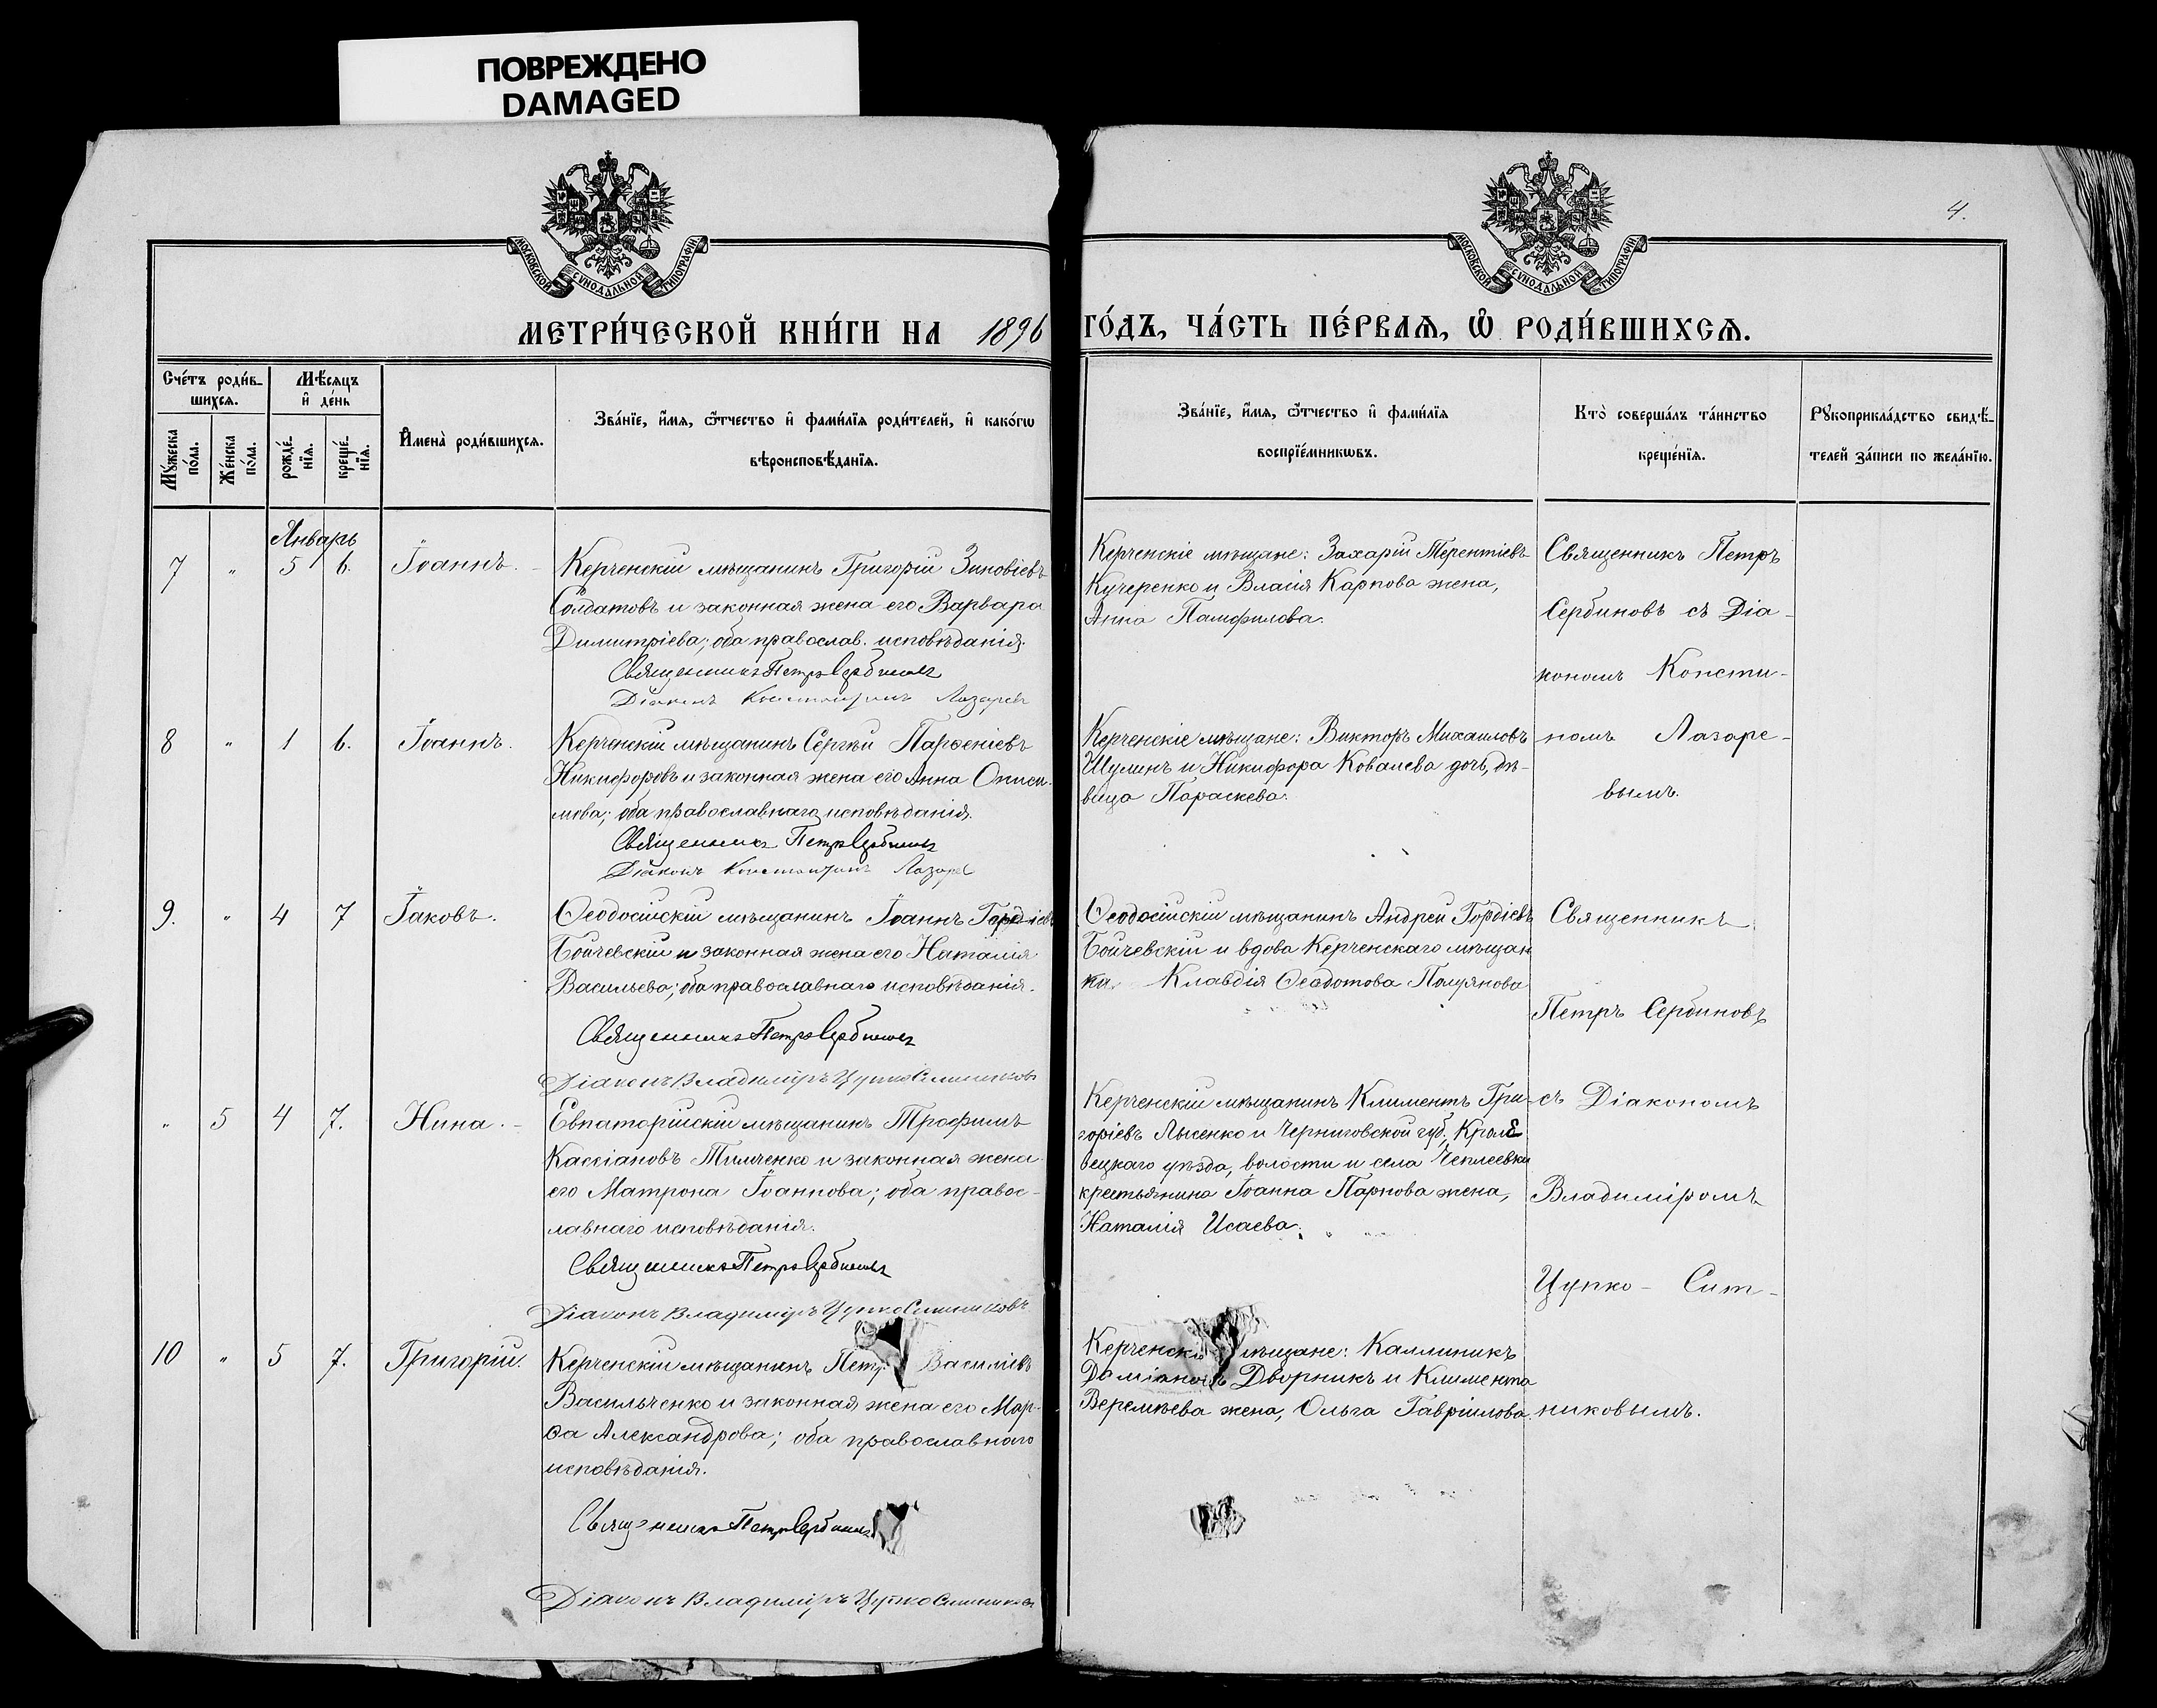 ПОВРЕЖДЕНО
DAMAGED
МОСКОВСКОЙ СУНОДАЛЬНОЙ ТИПОГРАФІИ
МОСКОВСКОЙ СУНОДАЛЬНОЙ ТИПОГРАФІИ
4.
МЕТРИ́ЧЕСКОЙ КНИ́ГИ НА 1896
ГО́ДЪ, ЧА́СТЬ ПЕ́РВАѦ, Ѡ҆ РОДИ́ВШИХСѦ.
Сче́тъ роди́в-
шихсѧ.
Мꙋ́жеска
по́ла.
Же́нска
по́ла.
Мѣ́сѧцъ
и҆ де́нь
рожде́-
нїѧ.
креще́-
нїѧ.
И҆мена̀ роди́вшихсѧ.
Зва́нїе, и҆́мѧ, ѻ҆́тчество и҆ фами́лїѧ роди́телей, и҆ како́гѡ
вѣроисповѣ́данїѧ.
Зва́нїе, и҆́мѧ, ѻ҆́тчество и҆ фами́лїѧ
воспрїе́мникѡвъ.
Кто̀ соверша́лъ та́инство
креще́нїѧ.
Рꙋкоприкла́дство свидѣ́-
телей за́писи по жела́нїю.
Январь
7 " 5 6. Іоаннъ.
Керченскій мѣщанинъ Григорій Зиновіевъ
Солдатовъ и законная жена его Варвара
Димитріева; оба православ. исповѣданія.
Священникъ Петръ Сербиновъ
Діаконъ Константинъ Лазарев
Керченскіе мѣщане: Захарій Терентіевъ
Кучеренко и Власія Карпова жена,
Анна Памфилова.
Священникъ Петръ
Сербиновъ съ Діа-
кономъ Консти-
8 " 1 6. Іоаннъ.
Керченскій мѣщанинъ Сергѣй Парѳеніевъ
Никифоровъ и законная жена его Анна Ониси-
мова; оба православнаго исповѣданія.
Священникъ Петръ Сербиновъ
Діаконъ Константинъ Лазарев
Керченскіе мѣщане: Викторъ Михаиловъ
Шулинъ и Никифора Ковалева дочь, дѣ-
вица Параскева.
номъ Лазаре-
вымъ.
9. " 4 7 Іаковъ.
Ѳеодосійскій мѣщанинъ Іоаннъ Гордіевъ
Бойчевскій и законная жена его Наталія
Васильева; оба православнаго исповѣданія.
Священникъ Петръ Сербиновъ
Діаконъ Владиміръ Цупко Ситниковъ
Ѳеодосійскій мѣщанинъ Андрей Гордіевъ
Бойчевскій и вдова Керченскаго мѣщан
ка Клавдія Ѳеодотова Полуянова
Священникъ
Петръ Сербиновъ
" 5 4 7. Нина.
Евпаторійскій мѣщанинъ Трофимъ
Кассіановъ Тимченко и законная жена
его Матрона Іоаннова; оба правос-
лавнаго исповѣданія.
Священникъ Петръ Сербиновъ
Діаконъ Владиміръ Цупко Ситниковъ
Керченскій мѣщанинъ Климентъ Гри-
горіевъ Лысенко и Черниговской губ., Кроле
вецкаго уѣзда, волости и села Чеплеевки
крестьянина Іоанна Парнова жена,
Наталія Исаева.
съ Діакономъ
Владиміромъ
Цупко - Сит-
10 " 5 7. Григорій.
Керченскій мѣщанинъ Петръ Василіевъ
Васильченко и законная жена его Мар-
ѳа Александрова; оба православнаго
исповѣданія.
Священникъ Петръ Сербиновъ
Діаконъ Владиміръ Цупко Ситниковъ
Керченскіе мѣщане: Каллиникъ
Даміановъ Дворникъ и Климента
Веремѣева жена, Ольга Гавріилова.
никовымъ.